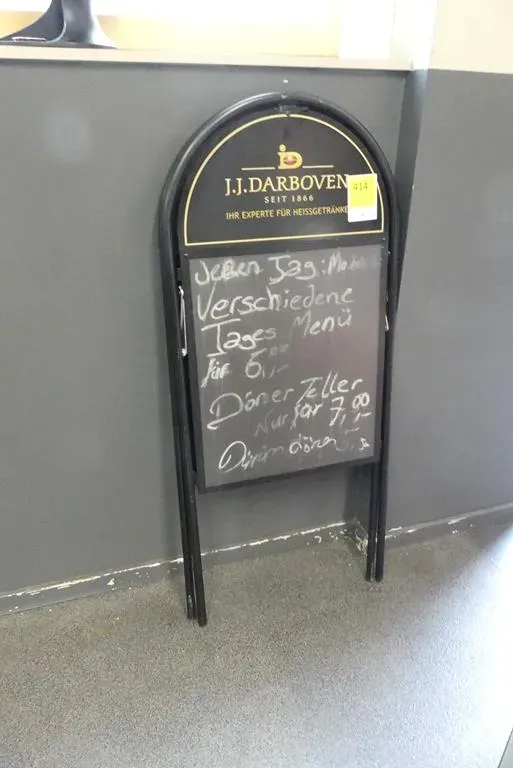 J.J.DARBOVEN
SEIT 1866
IHR EXPERTE FÜR HEISSGETRÄNKE
414
Jeden Tag:
Verschiedene
Tages Menü
für 6,00
Döner Teller
Nur für 7,00
Dürüm döner